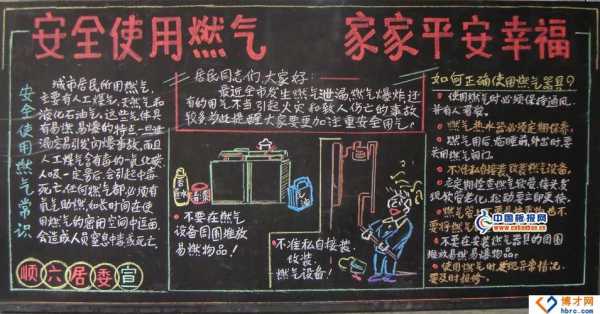 安全使用燃气 家家平安幸福
安全使用燃气常识
城市居民所用燃气,
主要有人工煤气,天然气和
液化石油气,这些气体具
有易燃易爆的特点一旦泄
漏容易引发闪爆事故,而且
人工煤气含有毒的一氧化碳
人吸一定量后会引起中毒
死亡任何燃气都必须有
氧气助燃如长时间在使
用燃气的密闭空间中逗留
会造成人员窒息中毒或死亡
顺六居委宣
居民同志们,大家好:
最近全市发生燃气泄漏,燃气爆炸,还
有的用气不当引起火灾和致人伤亡的事故
较多为此提醒大家要更加注重安全用气!
不要在燃气
设备周围堆放
易燃物品!
不准私自接装,
改装,
燃气设备!
如何正确使用燃气器具?
使用燃气时必须保持通风
并有人看管。
燃气热水器必须定期保养。
燃气用后,临睡前,外出时要
关闭燃气阀门。
不准私自接装改装燃气设备。
应定期检查燃气胶管,接头发
现胶管老化,松动要立即更换。
燃气管
要将燃气
不要在安装燃气器具的周围
堆放易燃易爆物品。
使用燃气时发现异常情况
要及时报修。
中国板报网
www.cnbanbao.cn
博才网
hbrc.com